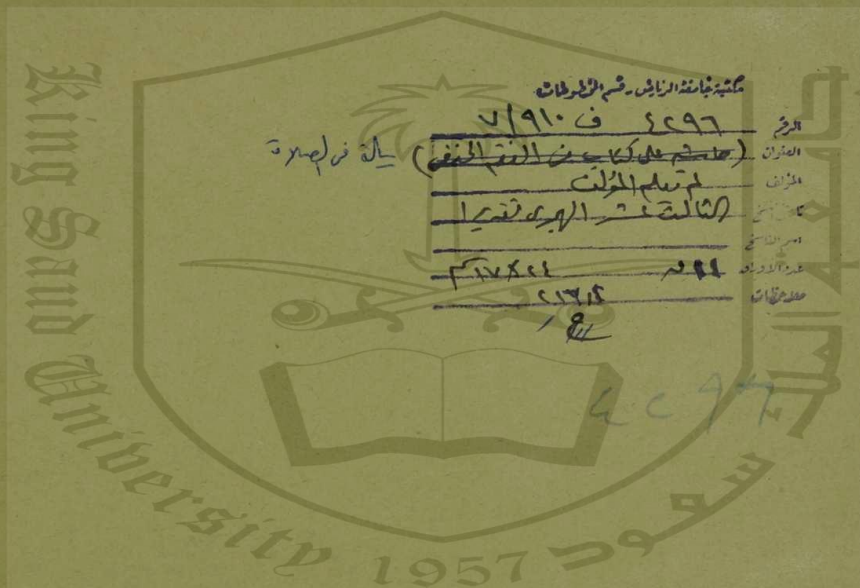 مكتبة جامعة الرياض - قسم المخطوطات
الرقم ٤٢٩٦ ف ٧/٩١٠
العنوان (حاشية على كتاب من الفقه الحنفي) رسالة في الصلاة
المؤلف لم يعلم المؤلف
تاريخ النسخ الثالث عشر الهجري تقديرا
اسم الناسخ
عدد الأوراق ١٧×٢٤ سم
ملاحظات
٤٢٩٦
King Saud University 1957
جامعة الملك سعود